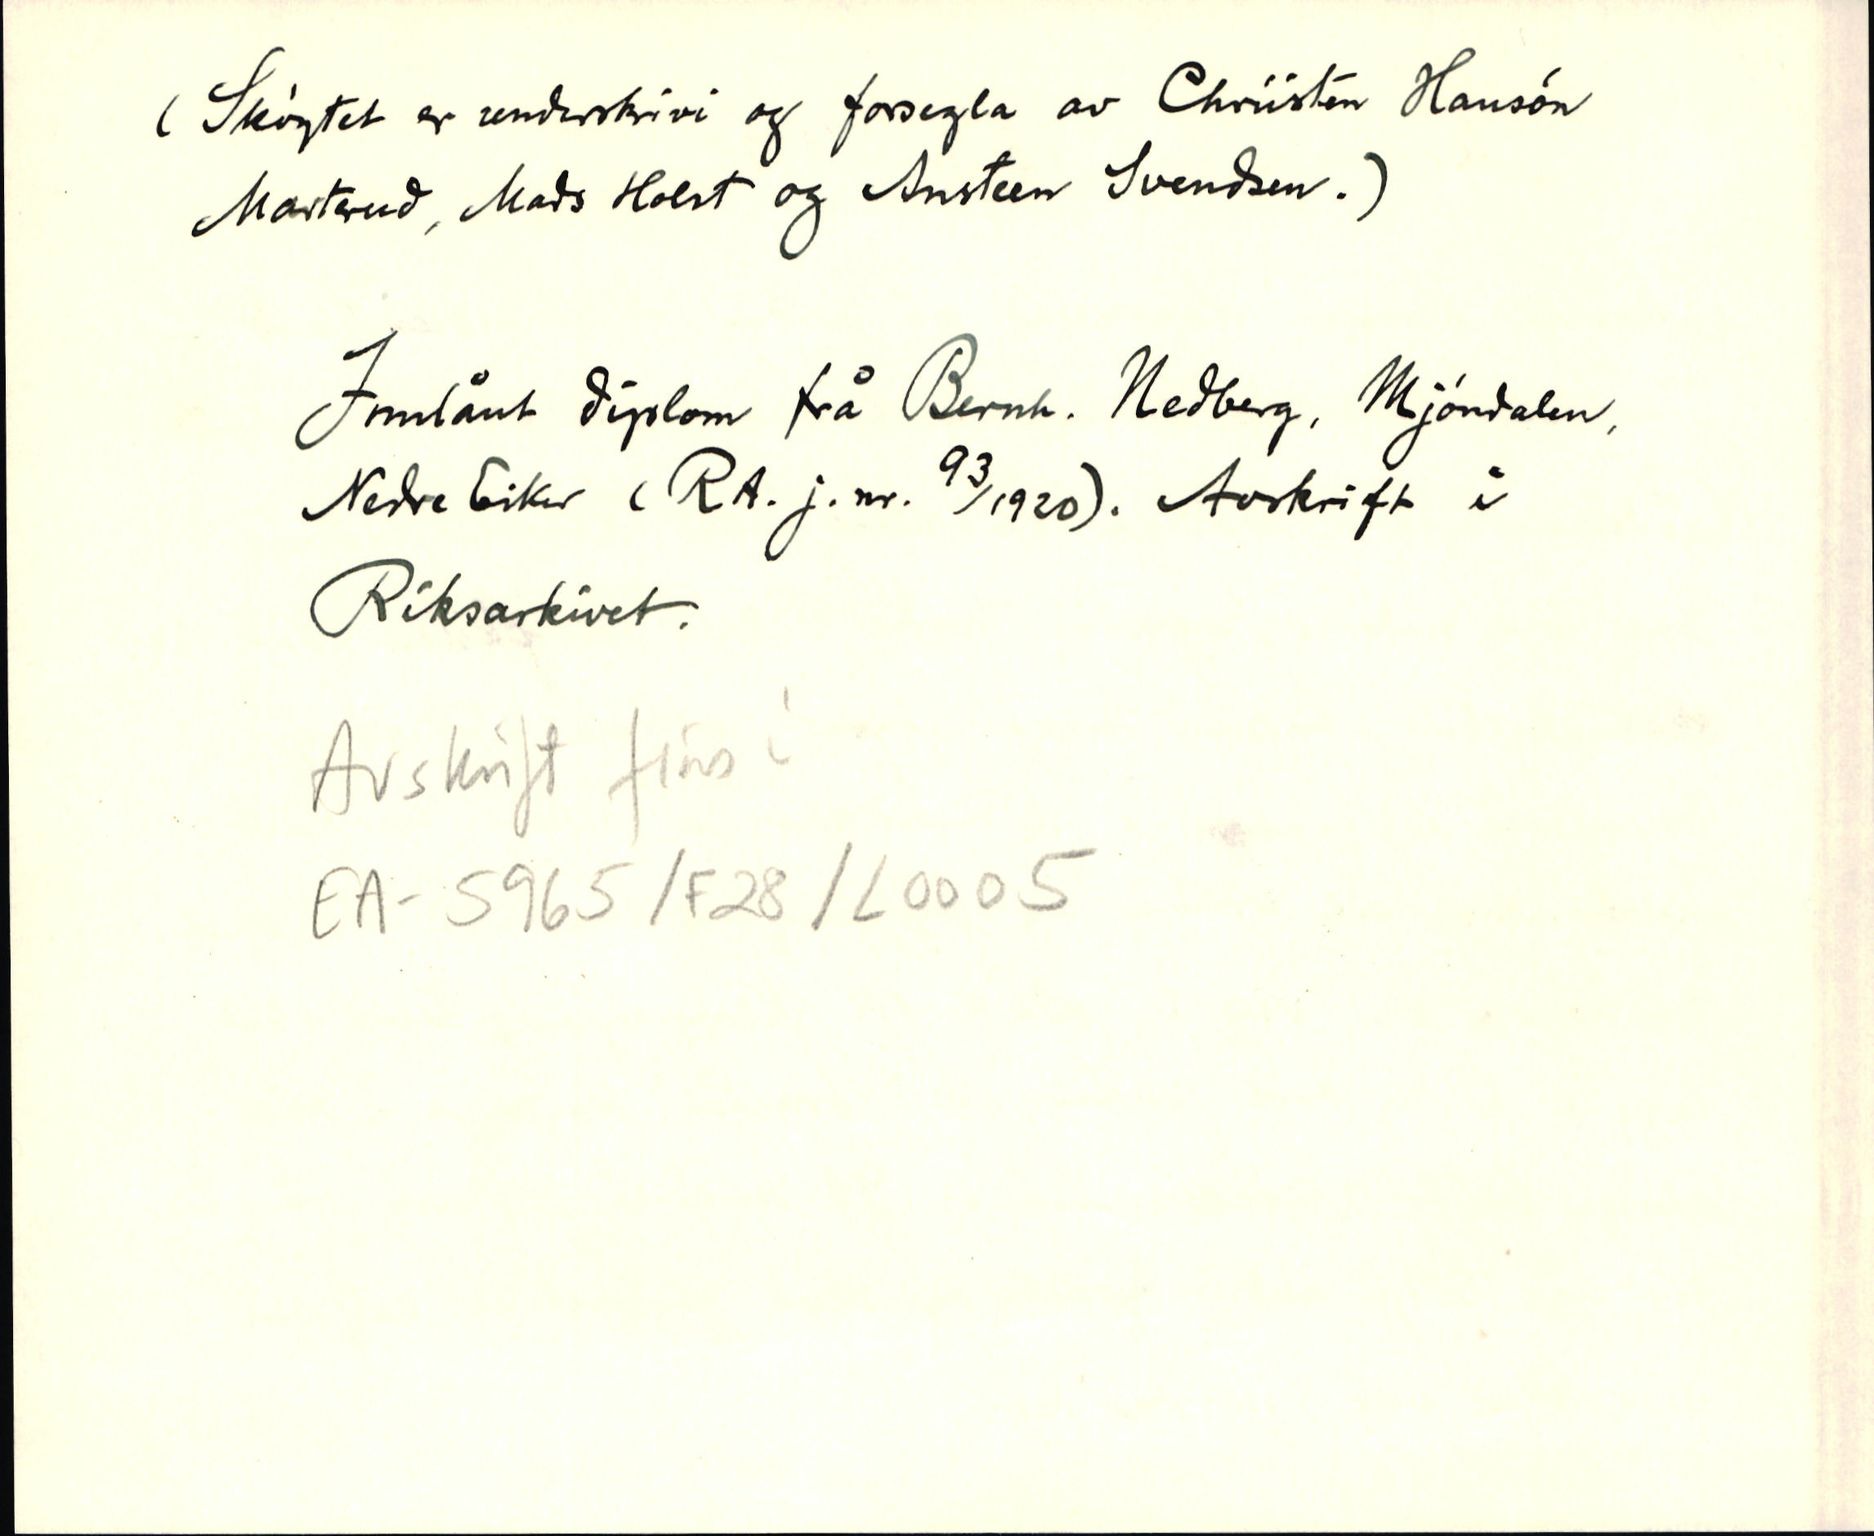 (Skøytet er underskrivi og forsegla av Christen Hansøn
Marterud, Mads Holst og Ansteen Svendsen.)
Innlånt diplom frå Bernh. Nedberg, Mjøndalen,
Nedre Eiker (RA. j. nr. 93/1920). Avskrift i
Riksarkivet.
Avskrift fins i
EA-5965/F28/L0005